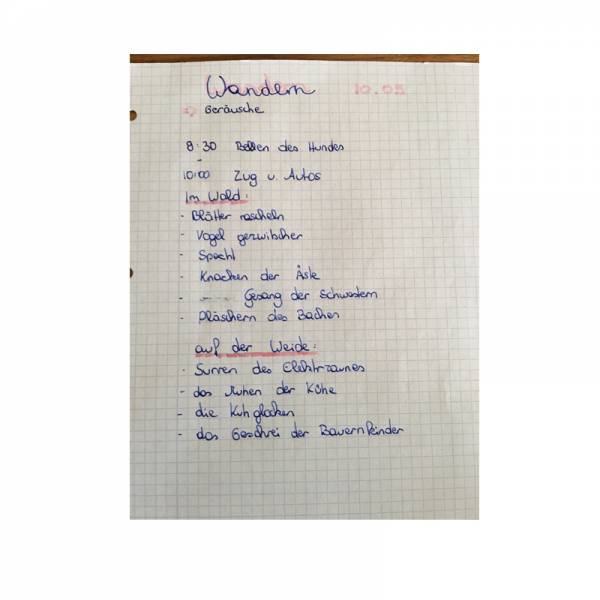 Wandern 10.05
=> Geräusche
8:30 Bellen des Hundes
-
10:00 Zug u. Autos
Im Wald:
- Blätter rascheln
- Vogel gezwitscher
- Specht
- Knacken der Äste
- Gesang der Schwestern
- Pläschern des Baches
auf der Weide:
- Surren des Elektrzaunes
- das Muhen der Kühe
- die Kuhglocken
- das Geschrei der Bauernkinder